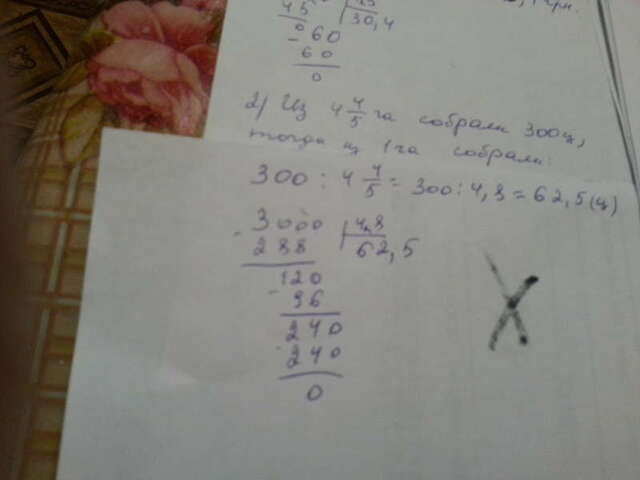 45
30,4
0
- 60
60
0
2) Из 4 4/5 га собрали 300 ц,
тогда из 1 га собрали:
300 : 4 4/5 = 300 : 4,8 = 62,5 (ц)
3000 4,8
- 288 62,5
120
- 96
240
- 240
0
X